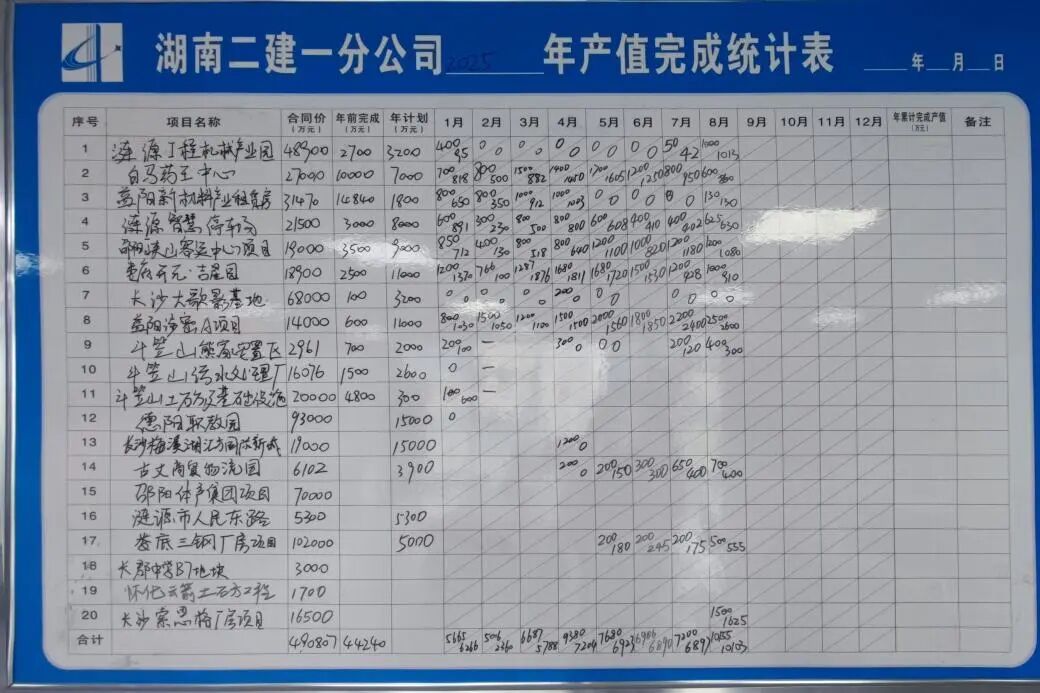 湖南二建一分公司 2025 年产值完成统计表 ____年__月__日
序号 项目名称 合同价(万元) 年前完成(万元) 年计划(万元) 1月 2月 3月 4月 5月 6月 7月 8月 9月 10月 11月 12月 年累计完成产值(万元) 备注
1 涟源工程机械产业园 48900 2700 3200 400 95 0 0 0 0 0 0 0 0 0 0 50 42 1000 1013
2 白马药王中心 27000 10000 7000 700 818 800 500 1500 882 1400 1450 1700 1605 1200 1250 800 950 600
3 益阳新材料产业租赁房 31470 14840 1800 800 650 800 350 1000 912 1000 1003 0 0 0 0 0 0 130 130
4 涟源智慧停车场 21500 3000 8000 600 891 300 230 800 500 800 800 600 608 400 410 400 402 625 630
5 客运中心项目 19000 3500 9000 850 712 400 130 800 518 800 640 1200 1100 1000 820 1200 1180 1200 1080
6 娄底开元·吉星园 18900 2500 11000 1200 1370 766 100 1287 1876 1680 1811 1680 1720 1500 1530 1200 928 1000 910
7 长沙大歌影基地 68000 100 3200 0 0 0 0 0 0 200 0 0 0 0 0 0 0 0 0
8 益阳 A项目 14000 600 11000 800 1030 1500 1050 1200 1100 1500 1500 2000 1560 1800 1850 2200 2400 2500 2600
9 斗笠山 安置区 2961 700 2000 200 100 — 300 0 0 0 200 120 400 300
10 斗笠山污水处理厂 16076 1500 2600 0 —
11 斗笠山 基础设施 20000 4800 300 100 600 —
12 德阳职教园 93000 15000 0
13 长沙梅溪湖 国际新城 19000 15000 1200 0
14 古丈商贸物流园 6102 3900 200 0 200 150 300 300 650 400 700 400
15 邵阳体产集团项目 70000
16 涟源市人民东路 5300 5300
17 娄底三钢厂房项目 102000 5000 200 180 200 245 200 175 500 555
18 长郡中学B7地块 3000
19 怀化云箭土石方工程 1700
20 长沙索恩格厂房项目 16500 1500 1625
合计 490807 44240 5665 6266 506 2360 6687 5788 9380 7204 7680 6923 6890 7200 6897 10155 10103